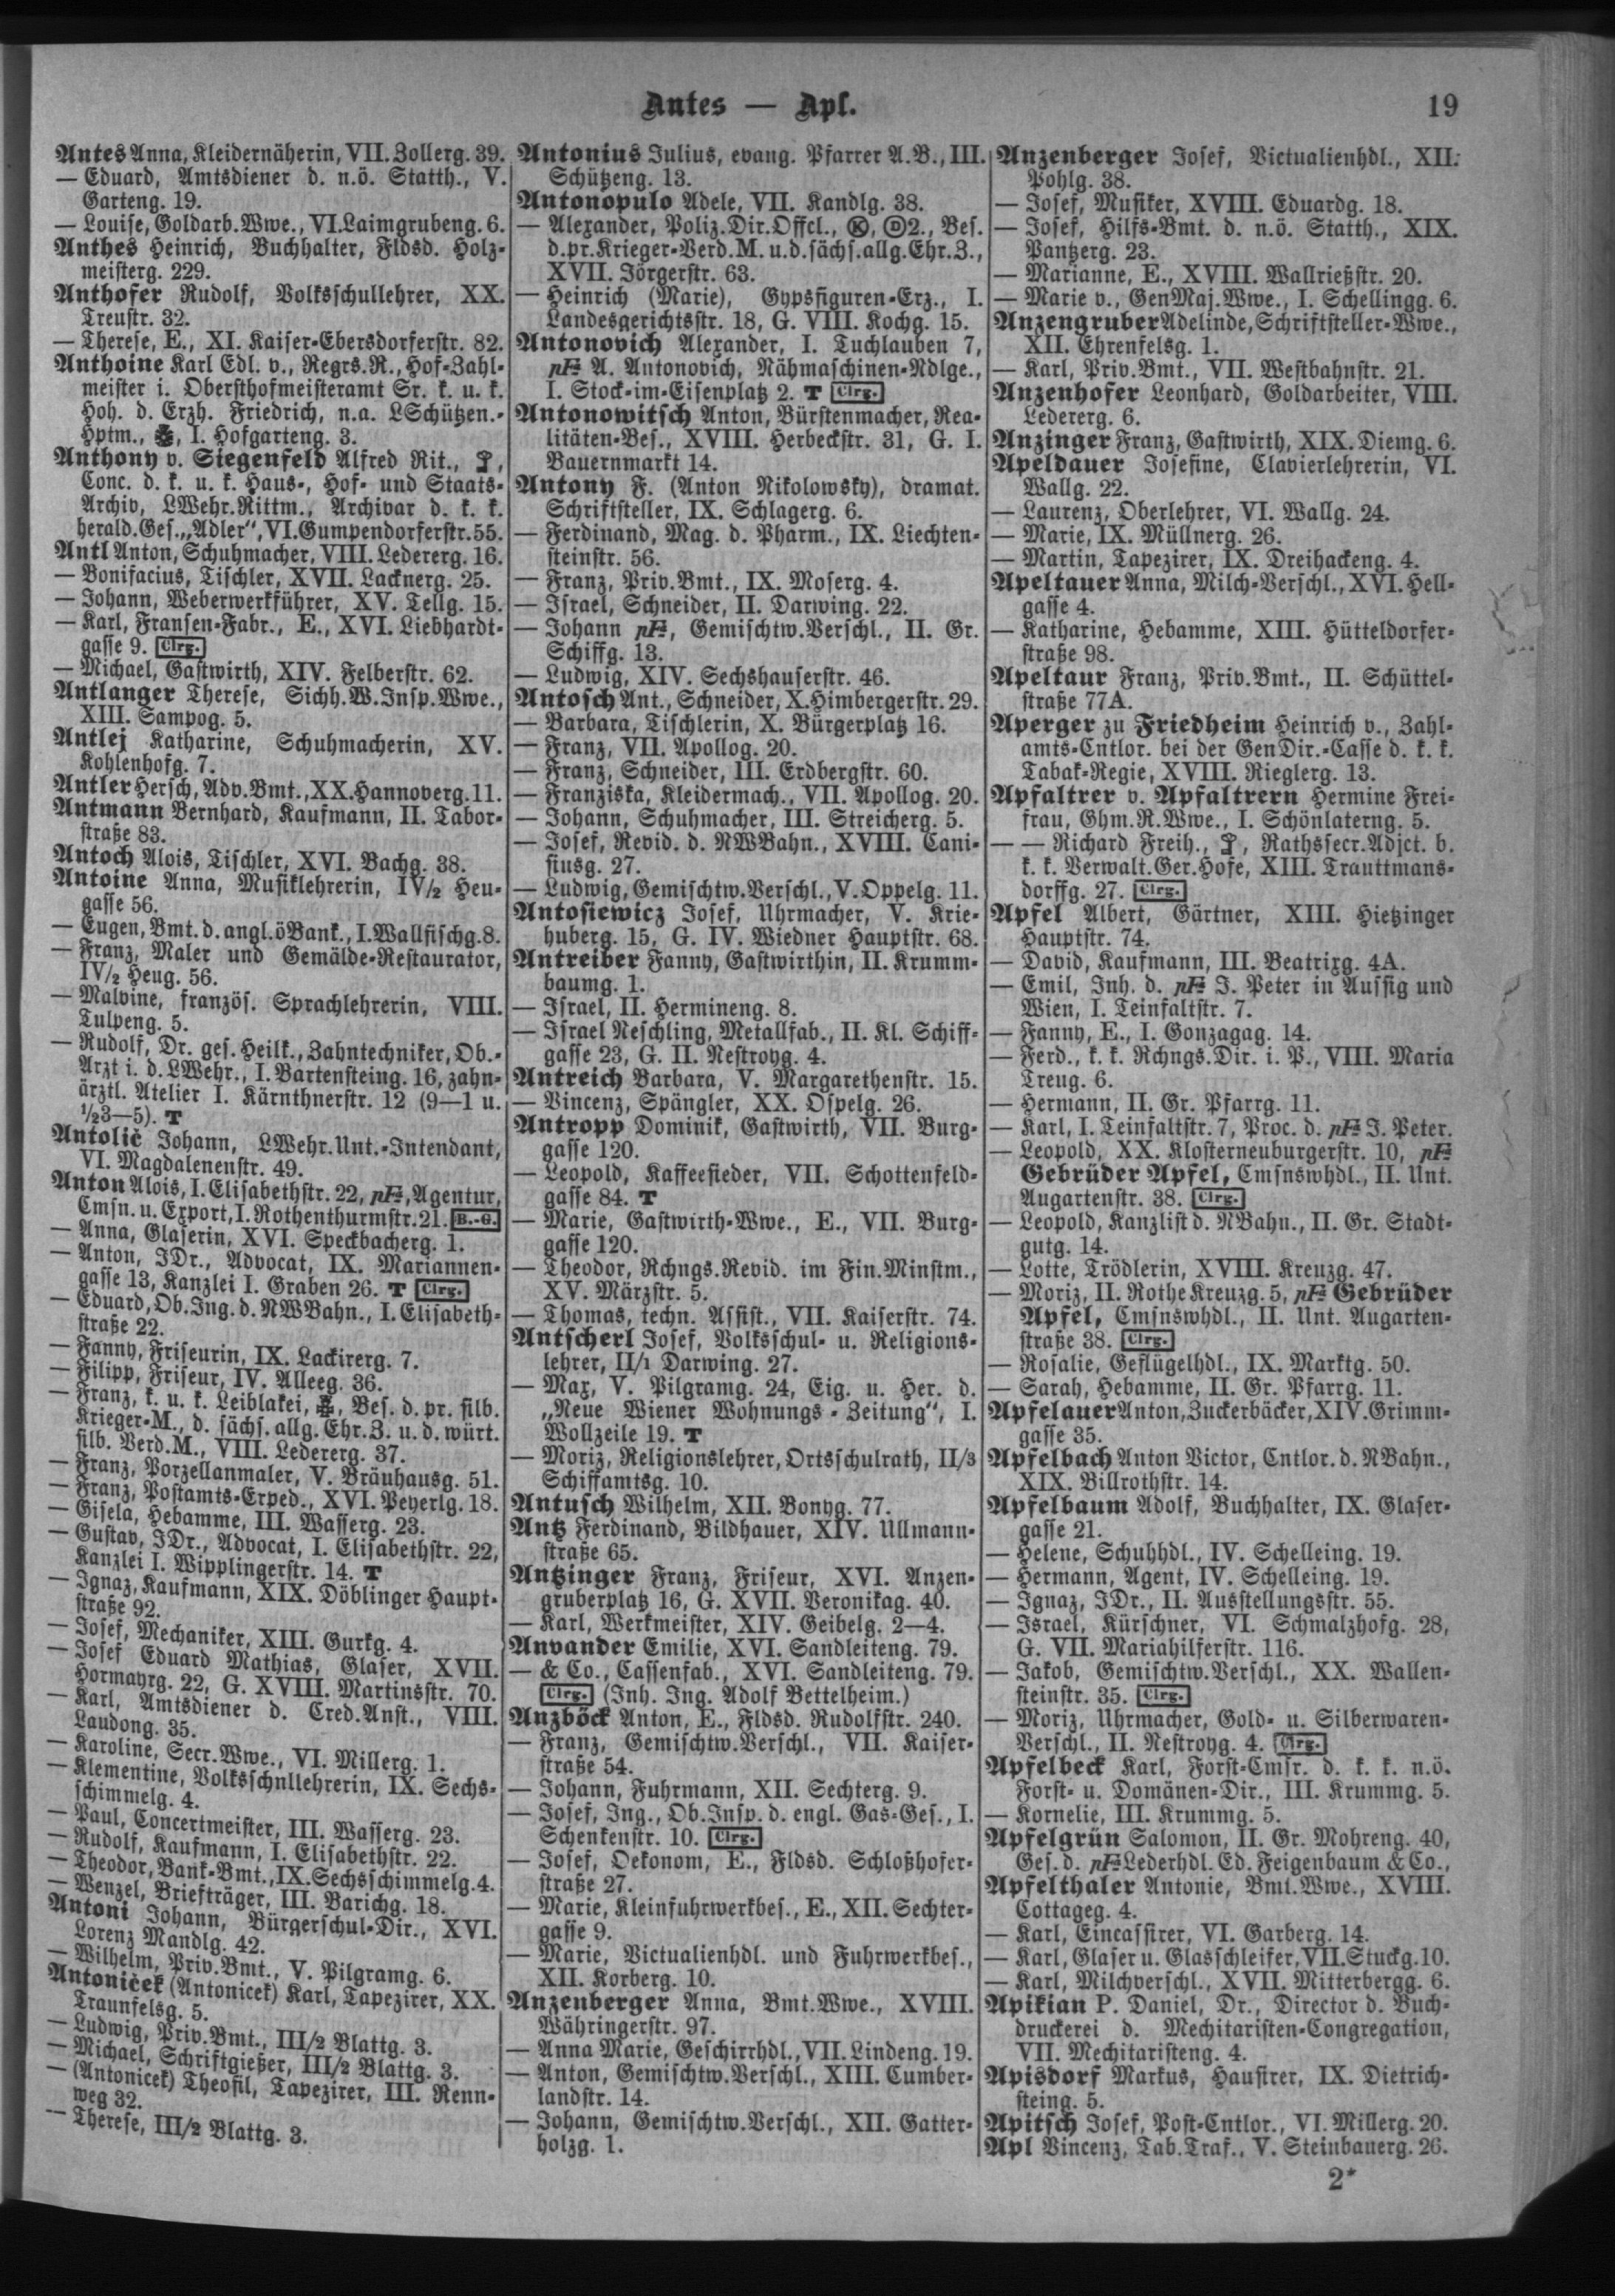 Antes — Apl.
19
Antes Anna, Kleidernäherin, VII. Zollerg. 39.
— Eduard, Amtsdiener d. n.ö. Statth., V.
Garteng. 19.
— Louise, Goldarb.Wwe., VI. Laimgrubeng. 6.
Anthes Heinrich, Buchhalter, Fldsd. Holz-
meisterg. 229.
Anthofer Rudolf, Volksschullehrer, XX.
Treustr. 32.
— Therese, E., XI. Kaiser-Ebersdorferstr. 82.
Anthoine Karl Edl. v., Regrs.R., Hof-Zahl-
meister i. Obersthofmeisteramt Sr. k. u. k.
Hoh. d. Erzh. Friedrich, n.a. LSchützen.-
Hptm., I. Hofgarteng. 3.
Anthony v. Siegenfeld Alfred Rit.,
Conc. d. k. u. k. Haus-, Hof- und Staats-
Archiv, LWehr.Rittm., Archivar d. k. k.
herald.Ges. „Adler", VI. Gumpendorferstr. 55.
Antl Anton, Schuhmacher, VIII. Ledererg. 16.
— Bonifacius, Tischler, XVII. Lacknerg. 25.
— Johann, Weberwerkführer, XV. Tellg. 15.
— Karl, Fransen-Fabr., E., XVI. Liebhardt-
gasse 9. Clrg.
— Michael, Gastwirth, XIV. Felberstr. 62.
Antlanger Therese, Sichh.W.Insp.Wwe.,
XIII. Sampog. 5.
Antlej Katharine, Schuhmacherin, XV.
Kohlenhofg. 7.
Antler Hersch, Adv.Bmt., XX. Hannoverg. 11.
Antmann Bernhard, Kaufmann, II. Tabor-
straße 83.
Antoch Alois, Tischler, XVI. Bachg. 38.
Antoine Anna, Musiklehrerin, IV/2 Heu-
gasse 56.
— Eugen, Bmt. d. angl.öBank., I. Wallfischg. 8.
— Franz, Maler und Gemälde-Restaurator,
IV/2 Heug. 56.
— Malvine, französ. Sprachlehrerin, VIII.
Tulpeng. 5.
— Rudolf, Dr. ges. Heilk., Zahntechniker, Ob.-
Arzt i. d. LWehr., I. Bartensteing. 16, zahn-
ärztl. Atelier I. Kärnthnerstr. 12 (9—1 u.
½3—5). T
Antolič Johann, LWehr.Unt.-Intendant,
VI. Magdalenenstr. 49.
Anton Alois, I. Elisabethstr. 22, pF, Agentur,
Cmsn. u. Export, I. Rothenthurmstr. 21. B.-G.
— Anna, Glaserin, XVI. Speckbacherg. 1.
— Anton, JDr., Advocat, IX. Mariannen-
gasse 13, Kanzlei I. Graben 26. T Clrg.
— Eduard, Ob.Ing. d. NWBahn., I. Elisabeth-
straße 22.
— Fanny, Friseurin, IX. Lackirerg. 7.
— Filipp, Friseur, IV. Alleeg. 36.
— Franz, k. u. k. Leiblakei, Bes. d. pr. silb.
Krieger-M., d. sächs. allg. Ehr.Z. u. d. würt.
silb. Verd.M., VIII. Ledererg. 37.
— Franz, Porzellanmaler, V. Bräuhausg. 51.
— Franz, Postamts-Exped., XVI. Peyerlg. 18.
— Gisela, Hebamme, III. Wasserg. 23.
— Gustav, JDr., Advocat, I. Elisabethstr. 22,
Kanzlei I. Wipplingerstr. 14. T
— Ignaz, Kaufmann, XIX. Döblinger Haupt-
straße 92.
— Josef, Mechaniker, XIII. Gurkg. 4.
— Josef Eduard Mathias, Glaser, XVII.
Hormayrg. 22, G. XVIII. Martinsstr. 70.
— Karl, Amtsdiener d. Cred.Anst., VIII.
Laudong. 35.
— Karoline, Secr.Wwe., VI. Millerg. 1.
— Klementine, Volksschnllehrerin, IX. Sechs-
schimmelg. 4.
— Paul, Concertmeister, III. Wasserg. 23.
— Rudolf, Kaufmann, I. Elisabethstr. 22.
— Theodor, Bank-Bmt., IX. Sechsschimmelg. 4.
— Wenzel, Briefträger, III. Barichg. 18.
Antoni Johann, Bürgerschul-Dir., XVI.
Lorenz Mandlg. 42.
— Wilhelm, Priv.Bmt., V. Pilgramg. 6.
Antoniček (Antonicek) Karl, Tapezirer, XX.
Traunfelsg. 5.
— Ludwig, Priv.Bmt., III/2 Blattg. 3.
— Michael, Schriftgießer, III/2 Blattg. 3.
— (Antonicek) Theofil, Tapezirer, III. Renn-
weg 32.
— Therese, III/2 Blattg. 3.
Antonius Julius, evang. Pfarrer A.B., III.
Schützeng. 13.
Antonopulo Adele, VII. Kandlg. 38.
— Alexander, Poliz.Dir.Offcl., Ⓚ, Ⓓ2., Bes.
d.pr.Krieger-Verd.M. u.d.sächs.allg.Ehr.Z.,
XVII. Jörgerstr. 63.
— Heinrich (Marie), Gypsfiguren-Erz., I.
Landesgerichtsstr. 18, G. VIII. Kochg. 15.
Antonovich Alexander, I. Tuchlauben 7,
pF A. Antonovich, Nähmaschinen-Ndlge.,
I. Stock-im-Eisenplatz 2. T Clrg.
Antonowitsch Anton, Bürstenmacher, Rea-
litäten-Bes., XVIII. Herbeckstr. 31, G. I.
Bauernmarkt 14.
Antony F. (Anton Nikolowsky), dramat.
Schriftsteller, IX. Schlagerg. 6.
— Ferdinand, Mag. d. Pharm., IX. Liechten-
steinstr. 56.
— Franz, Priv.Bmt., IX. Moserg. 4.
— Israel, Schneider, II. Darwing. 22.
— Johann pF, Gemischtw.Verschl., II. Gr.
Schiffg. 13.
— Ludwig, XIV. Sechshauserstr. 46.
Antosch Ant., Schneider, X. Himbergerstr. 29.
— Barbara, Tischlerin, X. Bürgerplatz 16.
— Franz, VII. Apollog. 20.
— Franz, Schneider, III. Erdbergstr. 60.
— Franziska, Kleidermach., VII. Apollog. 20.
— Johann, Schuhmacher, III. Streicherg. 5.
— Josef, Revid. d. NWBahn., XVIII. Cani-
siusg. 27.
— Ludwig, Gemischtw.Verschl., V. Oppelg. 11.
Antosiewicz Josef, Uhrmacher, V. Krie-
huberg. 15, G. IV. Wiedner Hauptstr. 68.
Antreiber Fanny, Gastwirthin, II. Krumm-
baumg. 1.
— Israel, II. Hermineng. 8.
— Israel Neschling, Metallfab., II. Kl. Schiff-
gasse 23, G. II. Nestroyg. 4.
Antreich Barbara, V. Margarethenstr. 15.
— Vincenz, Spängler, XX. Ospelg. 26.
Antropp Dominik, Gastwirth, VII. Burg-
gasse 120.
— Leopold, Kaffeesieder, VII. Schottenfeld-
gasse 84. T
— Marie, Gastwirth-Wwe., E., VII. Burg-
gasse 120.
— Theodor, Rchngs.Revid. im Fin.Minstm.,
XV. Märzstr. 5.
— Thomas, techn. Assist., VII. Kaiserstr. 74.
Antscherl Josef, Volksschul- u. Religions-
lehrer, II/1 Darwing. 27.
— Max, V. Pilgramg. 24, Eig. u. Her. d.
„Neue Wiener Wohnungs-Zeitung", I.
Wollzeile 19. T
— Moriz, Religionslehrer, Ortsschulrath, II/3
Schiffamtsg. 10.
Antusch Wilhelm, XII. Bonyg. 77.
Antz Ferdinand, Bildhauer, XIV. Ullmann-
straße 65.
Antzinger Franz, Friseur, XVI. Anzen-
gruberplatz 16, G. XVII. Veronikag. 40.
— Karl, Werkmeister, XIV. Geibelg. 2—4.
Anvander Emilie, XVI. Sandleiteng. 79.
— & Co., Cassenfab., XVI. Sandleiteng. 79.
Clrg. (Inh. Ing. Adolf Bettelheim.)
Anzböck Anton, E., Fldsd. Rudolfstr. 240.
— Franz, Gemischtw.Verschl., VII. Kaiser-
straße 54.
— Johann, Fuhrmann, XII. Sechterg. 9.
— Josef, Ing., Ob.Insp. d. engl. Gas-Ges., I.
Schenkenstr. 10. Clrg.
— Josef, Oekonom, E., Fldsd. Schloßhofer-
straße 27.
— Marie, Kleinfuhrwerkbes., E., XII. Sechter-
gasse 9.
— Marie, Victualienhdl. und Fuhrwerkbes.,
XII. Korberg. 10.
Anzenberger Anna, Bmt.Wwe., XVIII.
Währingerstr. 97.
— Anna Marie, Geschirrhdl., VII. Lindeng. 19.
— Anton, Gemischtw.Verschl., XIII. Cumber-
landstr. 14.
— Johann, Gemischtw.Verschl., XII. Gatter-
holzg. 1.
Anzenberger Josef, Victualienhdl., XII.
Pohlg. 38.
— Josef, Musiker, XVIII. Eduardg. 18.
— Josef, Hilfs-Bmt. d. n.ö. Statth., XIX.
Pantzerg. 23.
— Marianne, E., XVIII. Wallrießstr. 20.
— Marie v., GenMaj.Wwe., I. Schellingg. 6.
Anzengruber Adelinde, Schriftsteller-Wwe.,
XII. Ehrenfelsg. 1.
— Karl, Priv.Bmt., VII. Westbahnstr. 21.
Anzenhofer Leonhard, Goldarbeiter, VIII.
Ledererg. 6.
Anzinger Franz, Gastwirth, XIX. Diemg. 6.
Apeldauer Josefine, Clavierlehrerin, VI.
Wallg. 22.
— Laurenz, Oberlehrer, VI. Wallg. 24.
— Marie, IX. Müllnerg. 26.
— Martin, Tapezirer, IX. Dreihackeng. 4.
Apeltauer Anna, Milch-Verschl., XVI. Hell-
gasse 4.
— Katharine, Hebamme, XIII. Hütteldorfer-
straße 98.
Apeltaur Franz, Priv.Bmt., II. Schüttel-
straße 77A.
Aperger zu Friedheim Heinrich v., Zahl-
amts-Cntlor. bei der GenDir.-Casse d. k. k.
Tabak-Regie, XVIII. Rieglerg. 13.
Apfaltrer v. Apfaltrern Hermine Frei-
frau, Ghm.R.Wwe., I. Schönlaterng. 5.
— — Richard Freih., Rathssecr.Adjct. b.
k. k. Verwalt.Ger.Hofe, XIII. Trauttmans-
dorffg. 27. Clrg.
Apfel Albert, Gärtner, XIII. Hietzinger
Hauptstr. 74.
— David, Kaufmann, III. Beatrixg. 4A.
— Emil, Inh. d. pF J. Peter in Aussig und
Wien, I. Teinfaltstr. 7.
— Fanny, E., I. Gonzagag. 14.
— Ferd., k. k. Rchngs.Dir. i. P., VIII. Maria
Treug. 6.
— Hermann, II. Gr. Pfarrg. 11.
— Karl, I. Teinfaltstr. 7, Proc. d. pF J. Peter.
— Leopold, XX. Klosterneuburgerstr. 10, pF
Gebrüder Apfel, Cmsnswhdl., II. Unt.
Augartenstr. 38. Clrg.
— Leopold, Kanzlist d. NBahn., II. Gr. Stadt-
gutg. 14.
— Lotte, Trödlerin, XVIII. Kreuzg. 47.
— Moriz, II. Rothe Kreuzg. 5, pF Gebrüder
Apfel, Cmsnswhdl., II. Unt. Augarten-
straße 38. Clrg.
— Rosalie, Geflügelhdl., IX. Marktg. 50.
— Sarah, Hebamme, II. Gr. Pfarrg. 11.
Apfelauer Anton, Zuckerbäcker, XIV. Grimm-
gasse 35.
Apfelbach Anton Victor, Cntlor. d. NBahn.,
XIX. Billrothstr. 14.
Apfelbaum Adolf, Buchhalter, IX. Glaser-
gasse 21.
— Helene, Schuhhdl., IV. Schelleing. 19.
— Hermann, Agent, IV. Schelleing. 19.
— Ignaz, JDr., II. Ausstellungsstr. 55.
— Israel, Kürschner, VI. Schmalzhofg. 28,
G. VII. Mariahilferstr. 116.
— Jakob, Gemischtw.Verschl., XX. Wallen-
steinstr. 35. Clrg.
— Moriz, Uhrmacher, Gold- u. Silberwaren-
Verschl., II. Nestroyg. 4. Clrg.
Apfelbeck Karl, Forst-Cmsr. d. k. k. n.ö.
Forst- u. Domänen-Dir., III. Krummg. 5.
— Kornelie, III. Krummg. 5.
Apfelgrün Salomon, II. Gr. Mohreng. 40,
Ges. d. pF Lederhdl. Ed. Feigenbaum & Co.,
Apfelthaler Antonie, Bmt.Wwe., XVIII.
Cottageg. 4.
— Karl, Eincassirer, VI. Garberg. 14.
— Karl, Glaser u. Glasschleifer, VII. Stuckg. 10.
— Karl, Milchverschl., XVII. Mitterbergg. 6.
Apikian P. Daniel, Dr., Director d. Buch-
druckerei d. Mechitaristen-Congregation,
VII. Mechitaristeng. 4.
Apisdorf Markus, Hausirer, IX. Dietrich-
steing. 5.
Apitsch Josef, Post-Cntlor., VI. Millerg. 20.
Apl Vincenz, Tab.Traf., V. Steinbauerg. 26.
2*